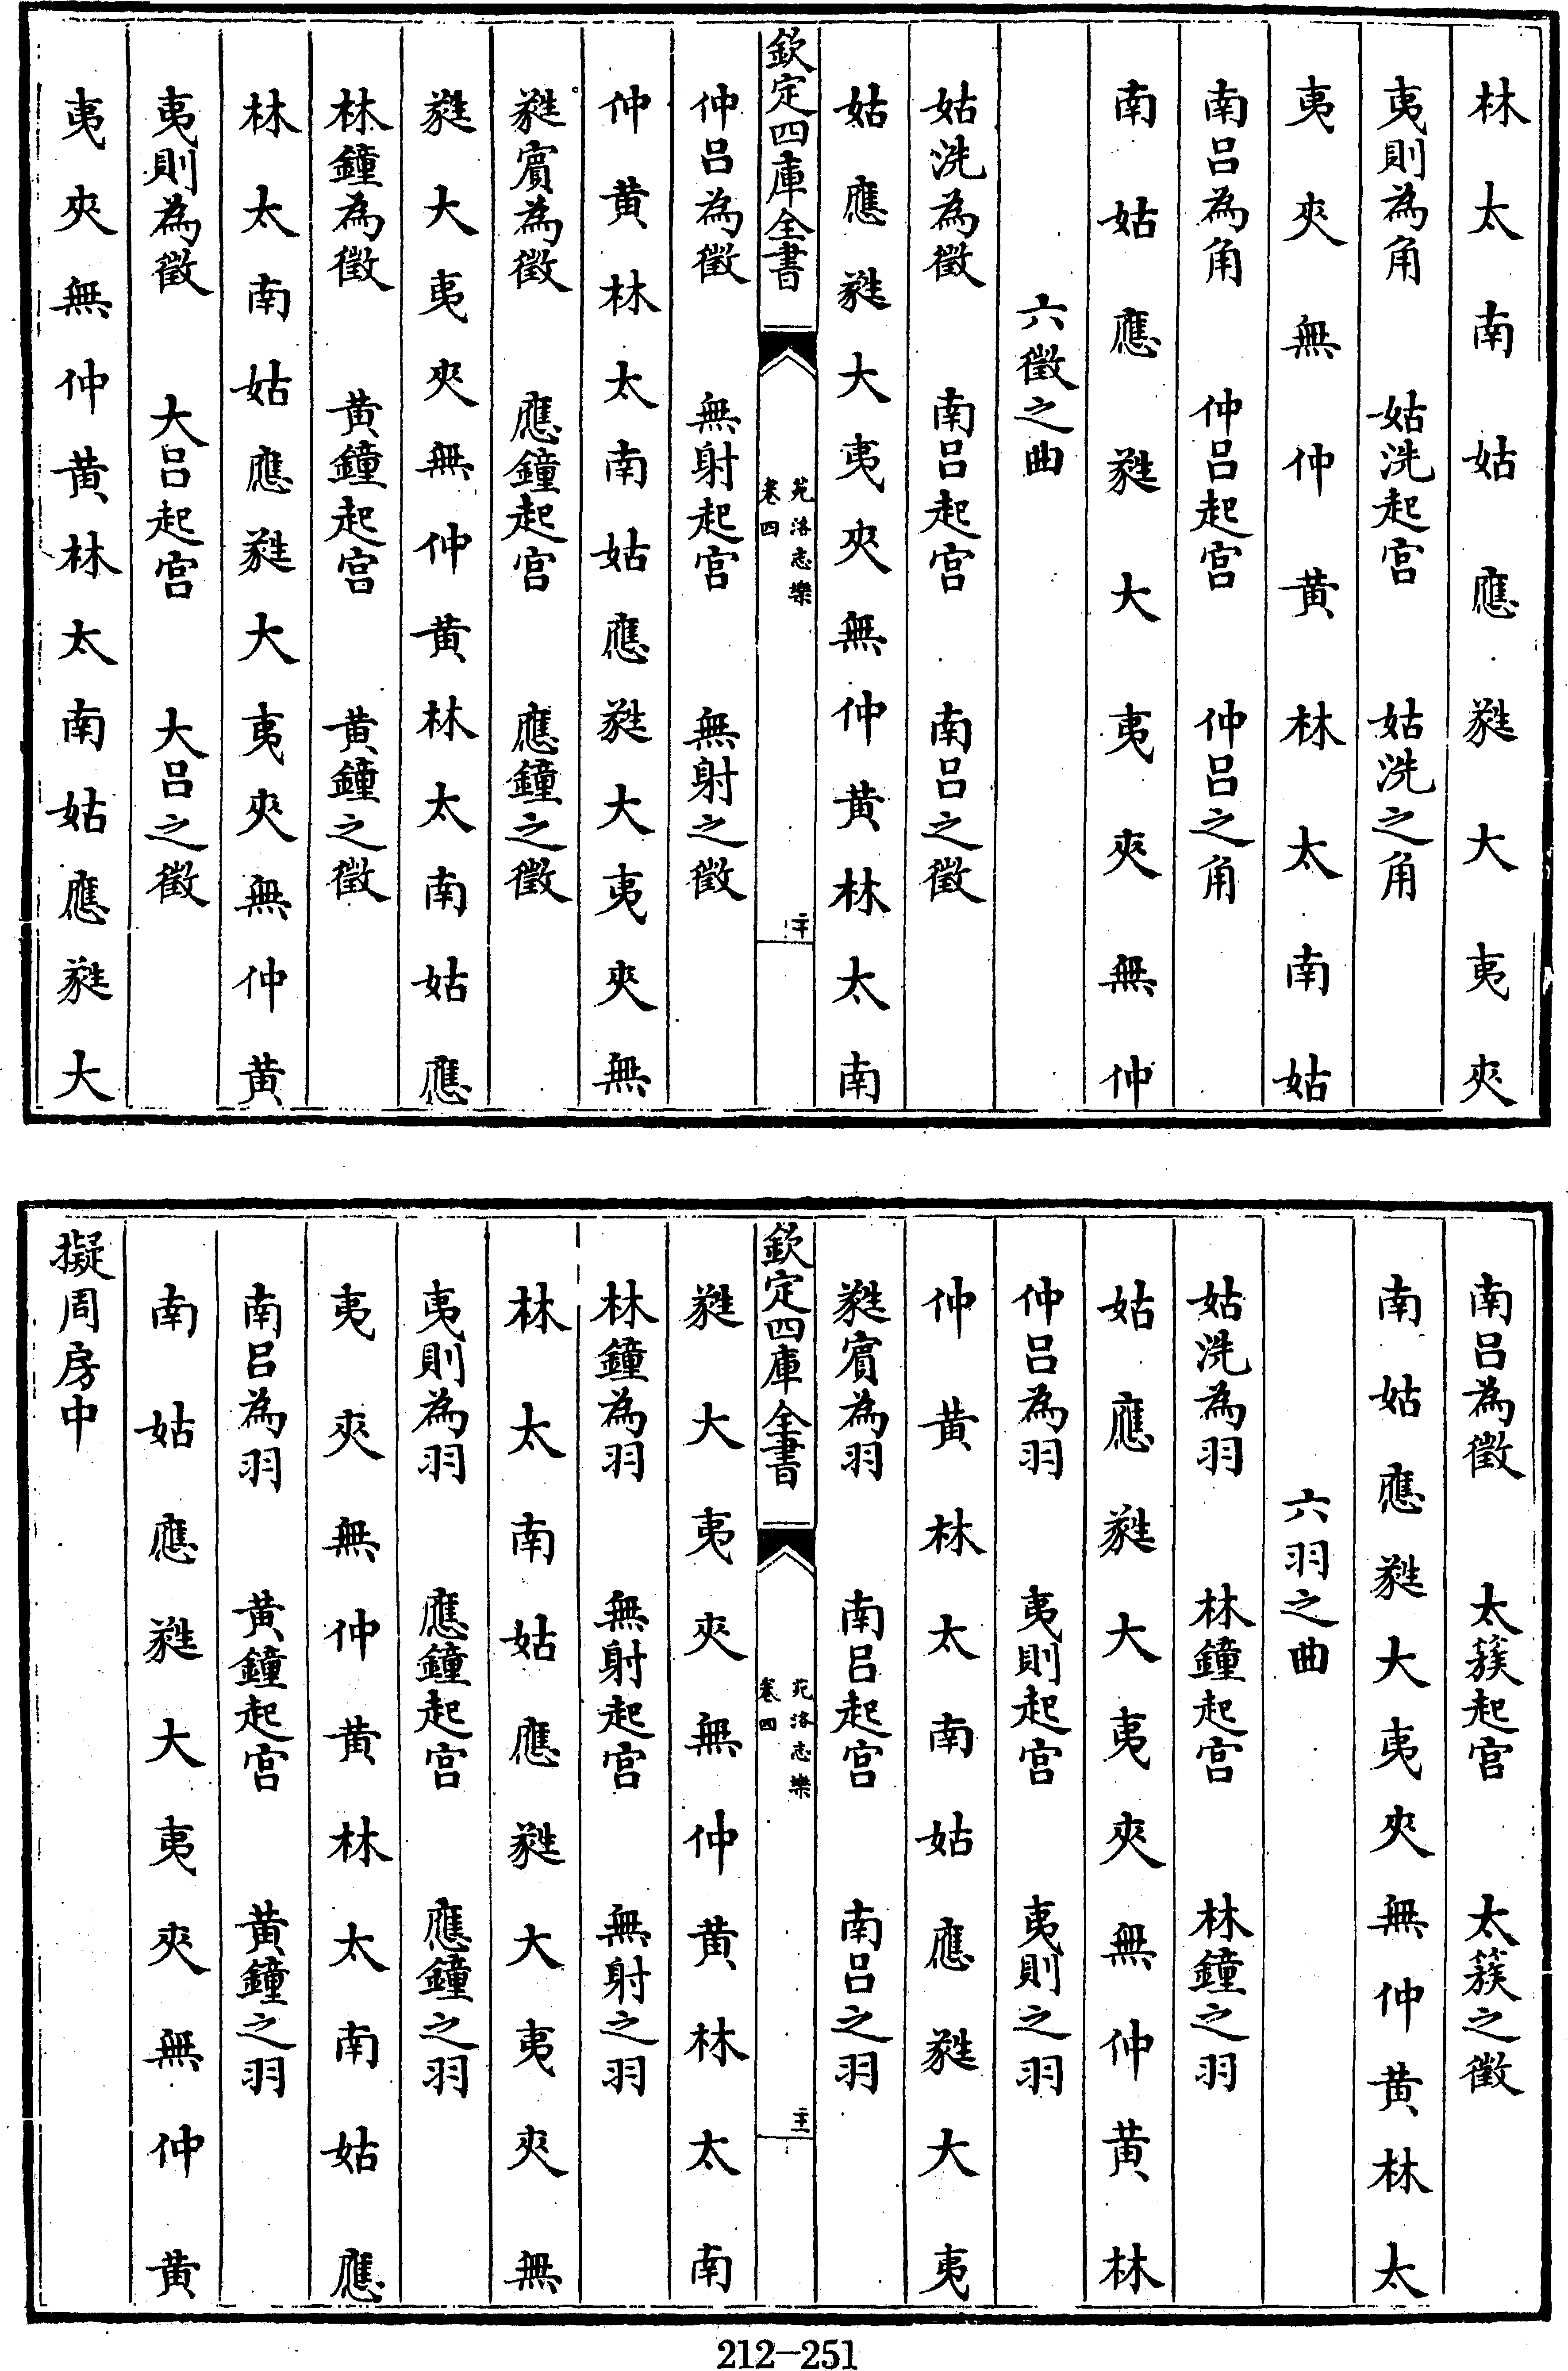 林太南姑應蕤大夷夾
夷則為角　姑洗起宮　姑洗之角
夷夾無仲黃林太南姑
南呂為角　仲呂起宮　仲呂之角
南姑應蕤大夷夾無仲
六徵之曲
姑洗為徵　南呂起宮　南呂之徵
姑應蕤大夷夾無仲黃林太南
欽定四庫全書
苑洛志樂
卷四
二十
仲呂為徵　無射起宮　無射之徵
仲黃林太南姑應蕤大夷夾無
蕤賔為徵　應鐘起宮　應鐘之徵
蕤大夷夾無仲黃林太南姑應
林鐘為徵　黃鐘起宮　黃鐘之徵
林太南姑應蕤大夷夾無仲黃
夷則為徵　大呂起宮　大呂之徵
夷夾無仲黃林太南姑應蕤大
南呂為徵　太簇起宮　太簇之徵
南姑應蕤大夷夾無仲黃林太
六羽之曲
姑洗為羽　林鐘起宮　林鐘之羽
姑應蕤大夷夾無仲黃林
仲呂為羽　夷則起宮　夷則之羽
仲黃林太南姑應蕤大夷
蕤賔為羽　南呂起宮　南呂之羽
欽定四庫全書
苑洛志樂
卷四
二十一
蕤大夷夾無仲黃林太南
林鐘為羽　無射起宮　無射之羽
林太南姑應蕤大夷夾無
夷則為羽　應鐘起宮　應鐘之羽
夷夾無仲黃林太南姑應
南呂為羽　黃鐘起宮　黃鐘之羽
南姑應蕤大夷夾無仲黃
擬周房中
212-251